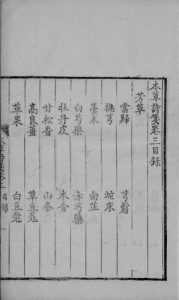 本草詩箋卷三目錄
芳草
當歸 芎藭
撫芎 蛇床
藁本 白芷
白芍藥 赤芍藥
牡丹皮 木香
甘松香 山柰
高良薑 草豆蔻
草果 白豆蔻